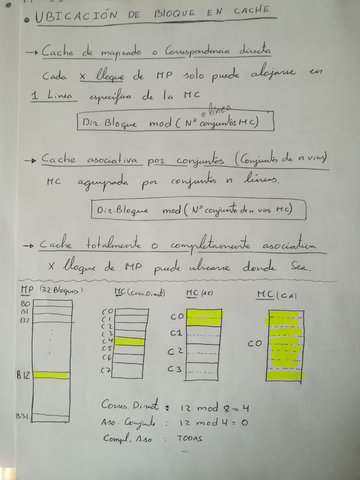 • UBICACIÓN DE BLOQUE EN CACHE
→ Cache de mapeado o Correspondencia directa
Cada x bloque de MP solo puede alojarse en
1 Linea especifica de la MC
o linea
Dir. Bloque mod (Nº conjuntos MC)
→ Cache asociativa por conjuntos (Conjuntos de n vias)
MC agrupada por conjuntos n lineas.
Dir Bloque mod (Nº conjunto de n vias MC)
→ Cache totalmente o completamente asociativa
X bloque de MP puede ubicarse donde Sea.
MP (32 Bloques) MC (Corr.Direct) MC (AC) MC (CA)
B0
B1
B2
B12
B31
C0
C1
C2
C3
C4
C5
C6
C7
C0
C1
C2
C3
C0
Corres Direct : 12 mod 8 = 4
Aso. Conjunto : 12 mod 4 = 0
Compl. Aso : TODAS